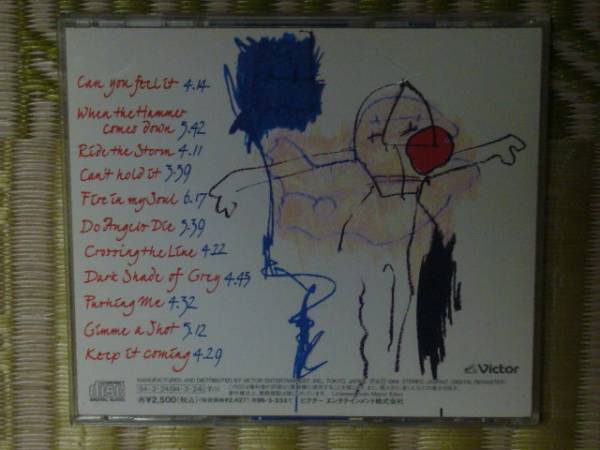 Can you feel it 4.14
When the Hammer
comes down 5.42
Ride the Storm 4.11
Can't hold it 3.59
Fire in my Soul 6.17
Do Angels Die 5.39
Crossing the Line 4.22
Dark Shade of Grey 4.45
Pushing Me 4.32
Gimme a Shot 5.12
Keep it coming 4.29
Victor
COMPACT
disc
DIGITAL AUDIO
MANUFACTURED AND DISTRIBUTED BY VICTOR ENTERTAINMENT, INC., TOKYO, JAPAN
STEREO
¥2,500(税込)
ビクター エンタテインメント株式会社